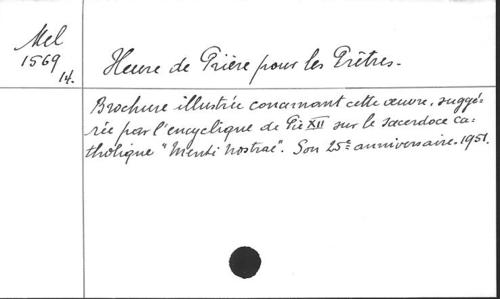 Mel
1569
14.
Heure de Prière pour les Prêtres.
Brochure illustrée concernant cette œuvre, suggé-
rée par l'encyclique de Pie XII sur le sacerdoce ca-
tholique "Menti Nostrae". Son 25e anniversaire. 1951.